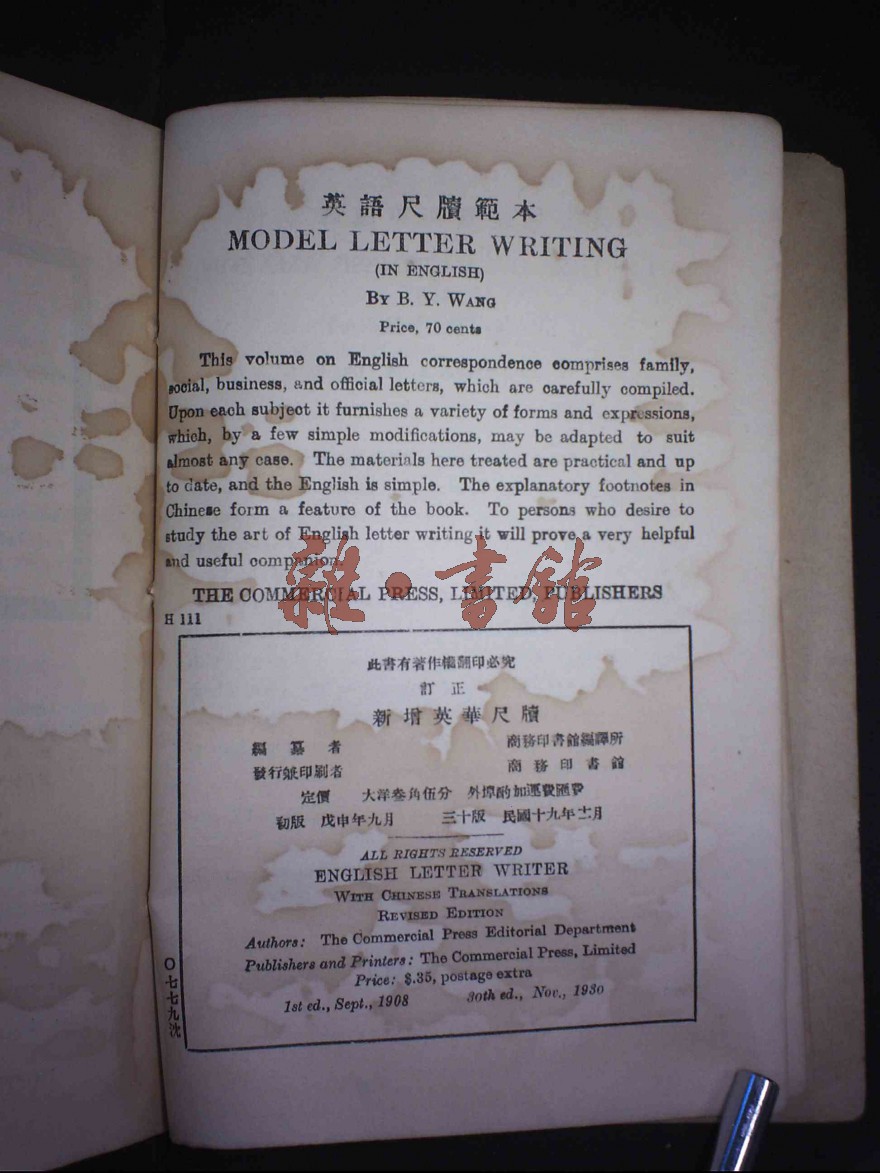 英語尺牘範本
MODEL LETTER WRITING
(IN ENGLISH)
BY B. Y. WANG
Price, 70 cents
This volume on English correspondence comprises family,
social, business, and official letters, which are carefully compiled.
Upon each subject it furnishes a variety of forms and expressions,
which, by a few simple modifications, may be adapted to suit
almost any case. The materials here treated are practical and up
to date, and the English is simple. The explanatory footnotes in
Chinese form a feature of the book. To persons who desire to
study the art of English letter writing it will prove a very helpful
and useful companion.
雜·書館
THE COMMERCIAL PRESS, LIMITED, PUBLISHERS
H 111
此書有著作權翻印必究
訂正
新增英華尺牘
編纂者 商務印書館編譯所
發行兼印刷者 商務印書館
定價 大洋叁角伍分 外埠酌加運費匯費
初版 戊申年九月 三十版 民國十九年十一月
ALL RIGHTS RESERVED
ENGLISH LETTER WRITER
WITH CHINESE TRANSLATIONS
REVISED EDITION
Authors: The Commercial Press Editorial Department
Publishers and Printers: The Commercial Press, Limited
Price: $.35, postage extra
1st ed., Sept., 1908 30th ed., Nov., 1930
〇七七九沈